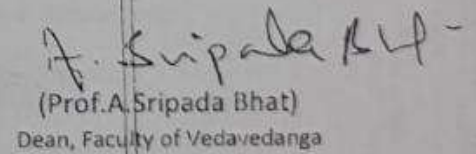 A. Sripada Bhat
(Prof.A.Sripada Bhat)
Dean, Faculty of Vedavedanga